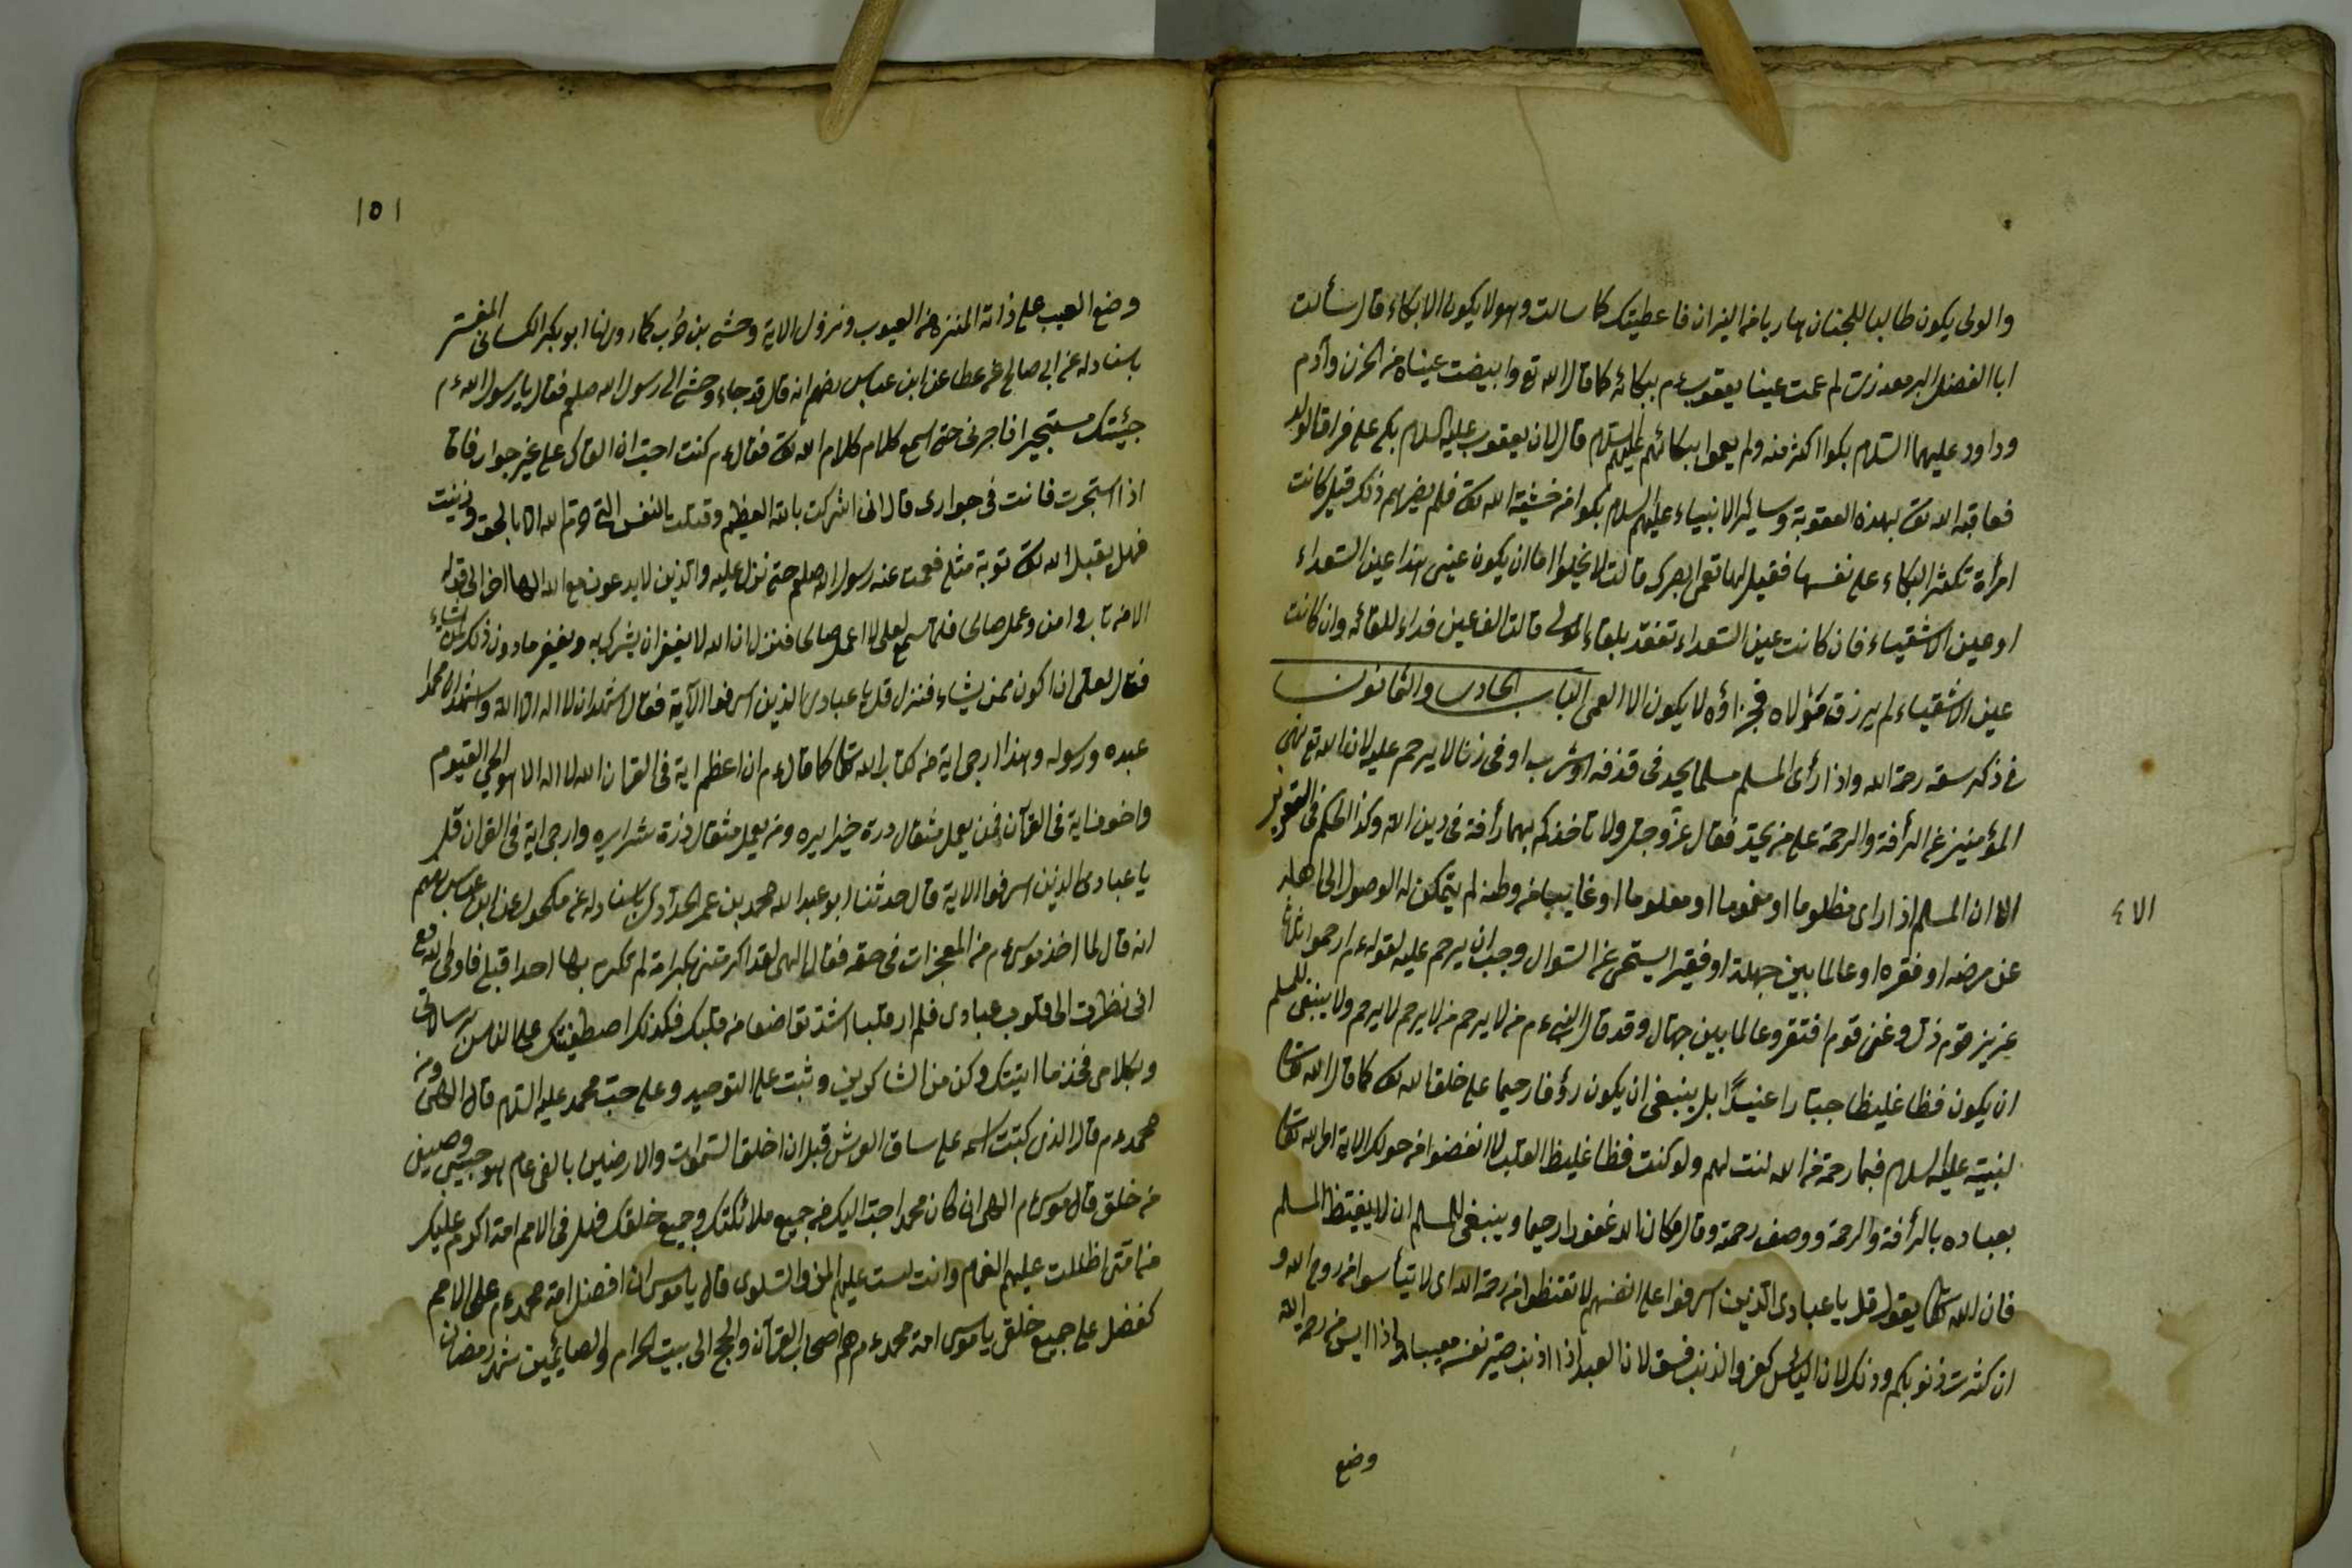 والولى يكون طالبا للجنان هاربا من النيران فاعطيتك كما سالت وهو لا يكون الا بكاء قال سألت
ابا الفضل البرمعدزى لم عمت عينا يعقوب ءم ببكائه كما قال الله تع وابيضت عيناه من الحزن وآدم
وداود عليهما السلام بكوا اكثر منه ولم يعموا ببكائهم عليهم السلام قال لان يعقوب عليه السلام بكى على فراق الولد
فعاقبه الله تعا بهذه العقوبة وسائر الانبياء عليهم السلام بكوا من خشية الله تعا فلم يضرهم ذلك قيل كانت
امرأة تكثر البكاء على نفسها فقيل لها تعمى بصرك قالت لا يخلوا اما ان يكون عينى هذا عين السعداء
او عين الاشقياء فان كانت عين السعداء تفقد بلقاء المولى قالت الف عين فداء للقائه وان كانت
عين الاشقياء لم يرزق مولاه فجزاؤه لا يكون الا العمى الباب الحادى والثمانون
فى ذكر سعة رحمة الله واذا رأى المسلم مسلما يحد فى قذفه او شرب او فى زنا لا يرحم عليه لان الله تع نهى
المؤمنين عن الرأفة والرحمة على من يحد فقال عز وجل ولا تاخذكم بهما رأفة فى دين الله وكذا الحكم فى التعزير
الا ان المسلم اذا راى مظلوما او مغموما او معلوما او غايبا من وطنه لم يتمكن له الوصول الى اهله
الا ٤
عن مرضه او فقره او عالما بين جهلة او فقيرا يستحى عن السوال وجب ان يرحم عليه لقوله ءم ارحموا ثلاثا
عزيز قوم ذل وغنى قوم افتقر وعالما بين جهال وقد قال النبى ءم من لا يرحم من لا يرحم لا يرحم ولا ينبغى للمسلم
ان يكون فظا غليظا جبارا عنيدًا بل ينبغى ان يكون رؤفا رحيما على خلق الله تعا كما قال الله تعا
لنبيه عليه السلام فبما رحمة من الله لنت لهم ولو كنت فظا غليظ القلب لا انفضوا من حولك الاية امر الله تعا
بعباده بالرأفة والرحمة ووصف رحمته وقال وكان الله غفورا رحيما وينبغى للمسلم ان لا يقنط المسلم
فان الله تعا يقول قل يا عبادى الذين اسرفوا على انفسهم لا تقنطوا من رحمة الله اى لا تيأسوا من روح الله و
ان كثرت ذنوبكم وذلك لان اليأس كفر والذنب فسق لان العبد اذا اذنب صير نفسه معيبا واذا ايس من رحمة الله
وضع
١٥١
وضع العيب على ذاته المنزه من العيوب ونزول الاية وحشى بن حرب كما روى لنا ابو بكر الكسائى المفسر
باسناد له عن ابى صالح عن عطا عن ابن عباس رضهم انه قال قد جاء وحشى الى رسول الله صلعم فقال يا رسول الله ءم
جيئتك مستجيرا فاجرنى حتى اسمع كلام كلام الله تعا فقال ءم كنت احب ان القاك على غير جوار فاما
اذا استجرت فانت فى جوارى قال انى اشركت بالله العظيم وقتلت النفس التى حرم الله الا بالحق وزنيت
فهل يقبل الله تعا توبة مثلى فصمت عنه رسول الله صلعم حتى نزل عليه والذين لا يدعون مع الله الها اخر الى قوله
الا من تاب وامن وعمل صالحا فلما سمع لعلى لا اعمل صالحا فنزل ان الله لا يغفر ان يشرك به ويغفر ما دون ذلك لمن يشاء
فقال لعلى ان اكون ممن يشاء فنزل قل يا عبادى الذين اسرفوا الآية فقال اشهد ان لا اله الا الله واشهد ان محمدا
عبده ورسوله وهذا ارجى اية من كتاب الله تعا كما قال ءم ان اعظم اية فى القران الله لا اله الا هو الحي القيوم
واخوف اية فى القرآن فمن يعمل مثقال ذرة خيرا يره ومن يعمل مثقال ذرة شرا يره وارجى اية فى القران قل
يا عبادى الذين اسرفوا الاية قال حدثنا ابو عبد الله محمد بن عمر الحدآدى باسناد له عن مكحول عن ابن عباس رضهم
انه قال لما اخذ موسى ءم من المعجزات فى حقه فقال الهى لقد اكرمتنى بكرامة لم تكرم بها احدا قبلى فاوحى الله تع
انى نظرت الى قلوب عبادى فلم ار قلبا اشد تواضعا من قلبك فكذلك اصطفيتك على الناس برسالاتى
وبكلامى فخذ ما اتيتك وكن من الشاكرين وثبت على التوحيد وعلى حب محمد عليه السلام قال الهى ومن
محمد ءم قال الذى كتبت اسمه على ساق العرش قبل ان اخلق السموات والارضين بالفى عام هو حبيبى وصفيى
من خلقى قال موسى ءم الهى ان كان محمد احب اليك من جميع ملائكتك وجميع خلقك فهل فى الامم امة اكرم عليك
من امتى اظللت عليهم الغمام وانزلت عليهم المن والسلوى قال يا موسى ان افضل امة محمد ءم على الامم
كفضلى على جميع خلقى يا موسى امة محمد ءم هم اصحاب القرآن والحج الى بيت الحرام والصائمين شهر رمضان